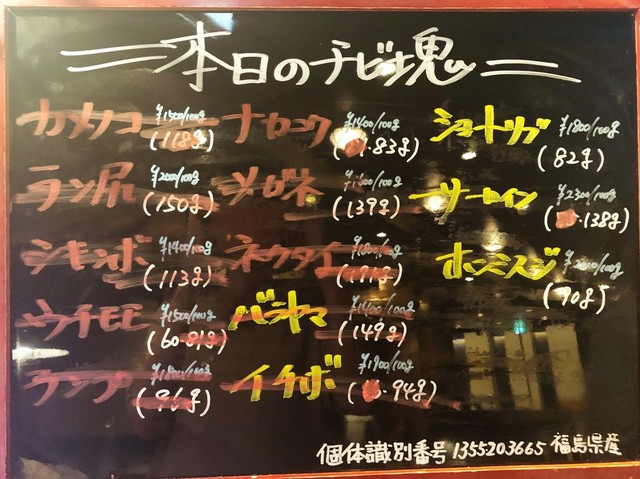 本日のチビ塊
カメノコ ¥1500/100g
(118g)
ラン尻 ¥2000/100g
(150g)
シキンボ ¥1400/100g
(113g)
ウチモモ ¥1500/100g
(60.81g)
ランプ ¥1800/100g
(96g)
ナカニク ¥1400/100g
(.83g)
メガネ /100g
(139g)
ネクタイ /100g
バラヤマ ¥1400/100g
(149g)
イチボ ¥1900/100g
(.94g)
ショートリブ ¥1800/100g
(82g)
サーロイン ¥2300/100g
(.138g)
ホンミスジ /100g
(90g)
個体識別番号 1355203665 福島県産